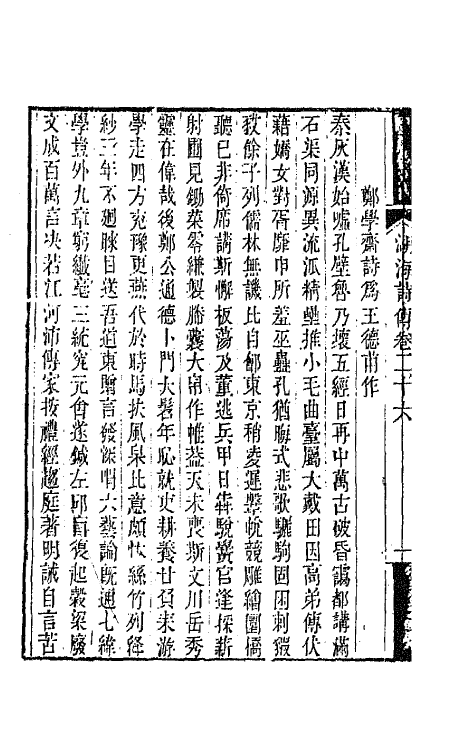 湖海詩傳卷二十六 一
鄭學齋詩爲王德甫作
秦灰漢始噓孔壁魯乃壞五經日再中萬古破昏靄都講滿
石渠同源異流泒精壘推小毛曲臺屬大戴田因高弟傳伏
藉嬌女對胥靡申所羞巫蠱孔猶晦式悲歌驪駒固困刺豭
敖餘子列儒林無譏比自鄶東京稍凌遲鞶帨競雕繪圜橋
聽已非倚席講斯懈板蕩及董逃兵甲日犇駾黌官逢採薪
射圃見鋤菜零縑製縢囊大帛作帷蓋天未喪斯文川岳秀
靈在偉哉後鄭公通德卜門大髫年恥就吏耕養甘負耒游
學走四方兖豫更燕代於時馬扶風臭比意頗快絲竹列絳
紗三年不廻睞目送吾道東贈言發深喟六藝論旣通七緯
學豈外九章窮纖毫三統究元會遂鍼左邱盲復起榖梁廢
文成百萬言决若江河沛傳家按禮經趨庭著明誡自言苦